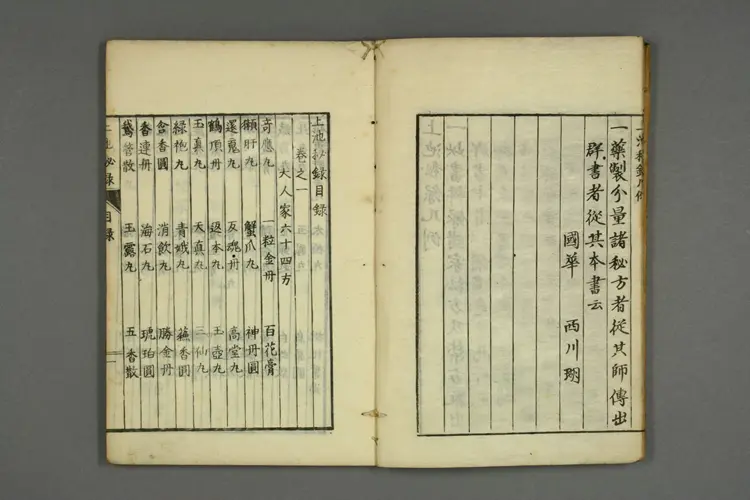 一藥製分量諸秘方者從其師傳出
群書者從其本書云
國華 西川瑚
上池秘錄目錄
卷之一
大人家六十四方
奇應丸 一粒金丹 百花膏
獺肝丸 蟹爪丸 神丹圓
還魂丸 反魂丹 高堂丸
鶴頂丹 返本丸 玉壺丸
玉真丸 天真丸 三仙丸
綠袍丸 青娥丸 蘓香圓
含香圓 消飲丸 勝金丹
香連丹 海石丸 琥珀圓
鵞管散 玉露丸 五香散
上池秘錄 目錄 一